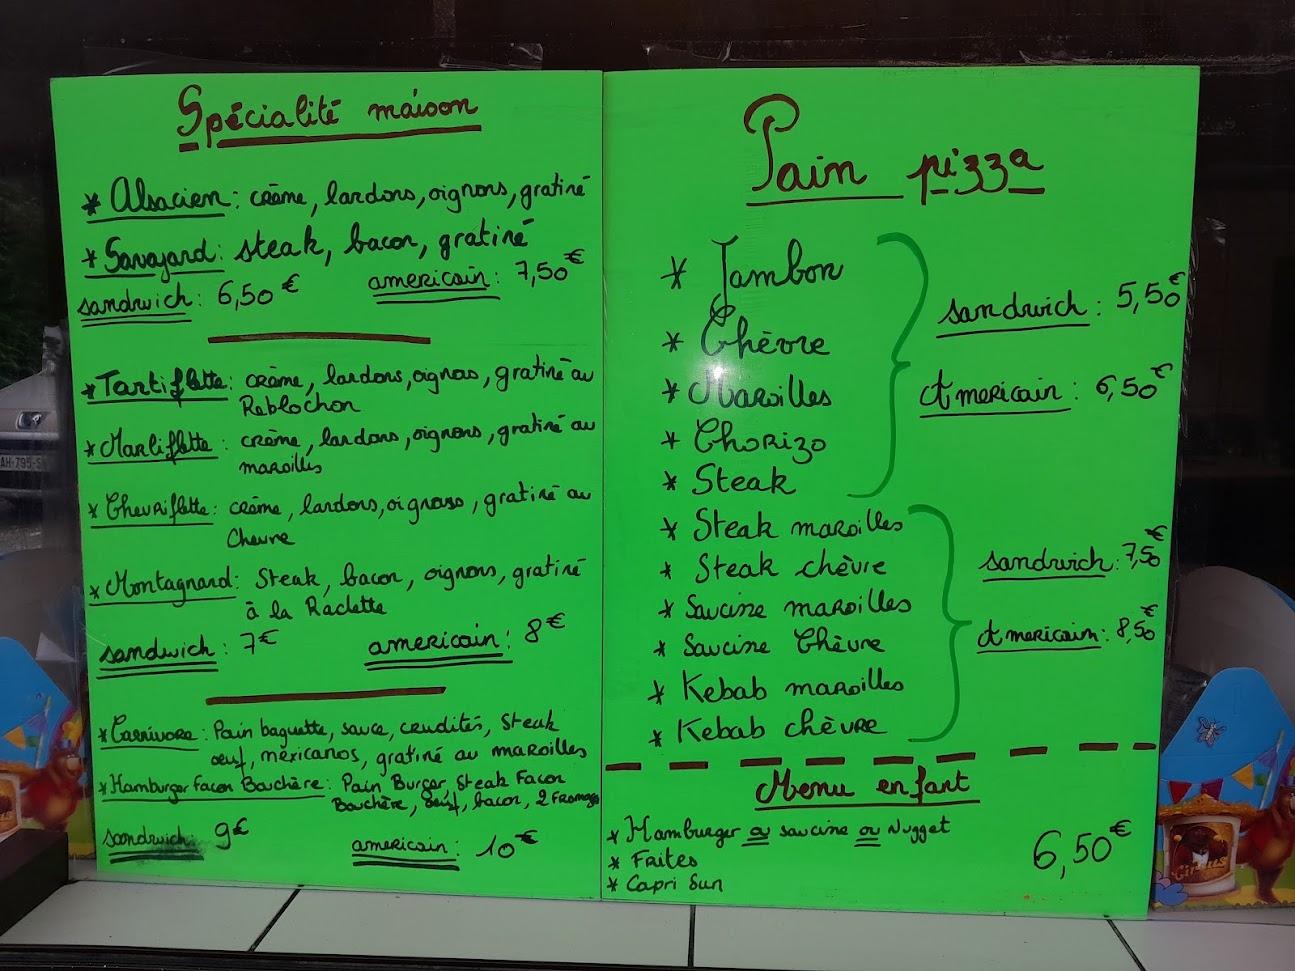 Spécialité maison
* Alsacien : crème, lardons, oignons, gratiné
* Savoyard : steak, bacon, gratiné
sandwich : 6,50 € americain : 7,50 €
* Tartiflette : crème, lardons, oignons, gratiné au
Reblochon
* Marliflette : crème, lardons, oignons, gratiné au
maroilles
* Chevriflette : crème, lardons, oignons, gratiné au
Chevre
* Montagnard : Steak, bacon, oignons, gratiné
à la Raclette
sandwich : 7 € americain : 8 €
* Carnivore : Pain baguette, sauce, crudités, Steak
oeuf, mexicanos, gratiné au maroilles
* Hamburger Facon Bouchère : Pain Burger, Steak Facon
Bouchère, oeuf, bacon, 2 Fromages
sandwich : 9 € americain : 10 €
Pain pizza
* Jambon
* Chèvre
* Maroilles
* Chorizo
* Steak
sandwich : 5,50 €
Americain : 6,50 €
* Steak maroilles
* Steak chèvre
* Saucisse maroilles
* Saucisse Chèvre
* Kebab maroilles
* Kebab chèvre
sandwich : 7,50 €
Americain : 8,50 €
Menu enfant
* Hamburger ou saucisse ou Nugget
* Frites
* Capri Sun
6,50 €
Circus